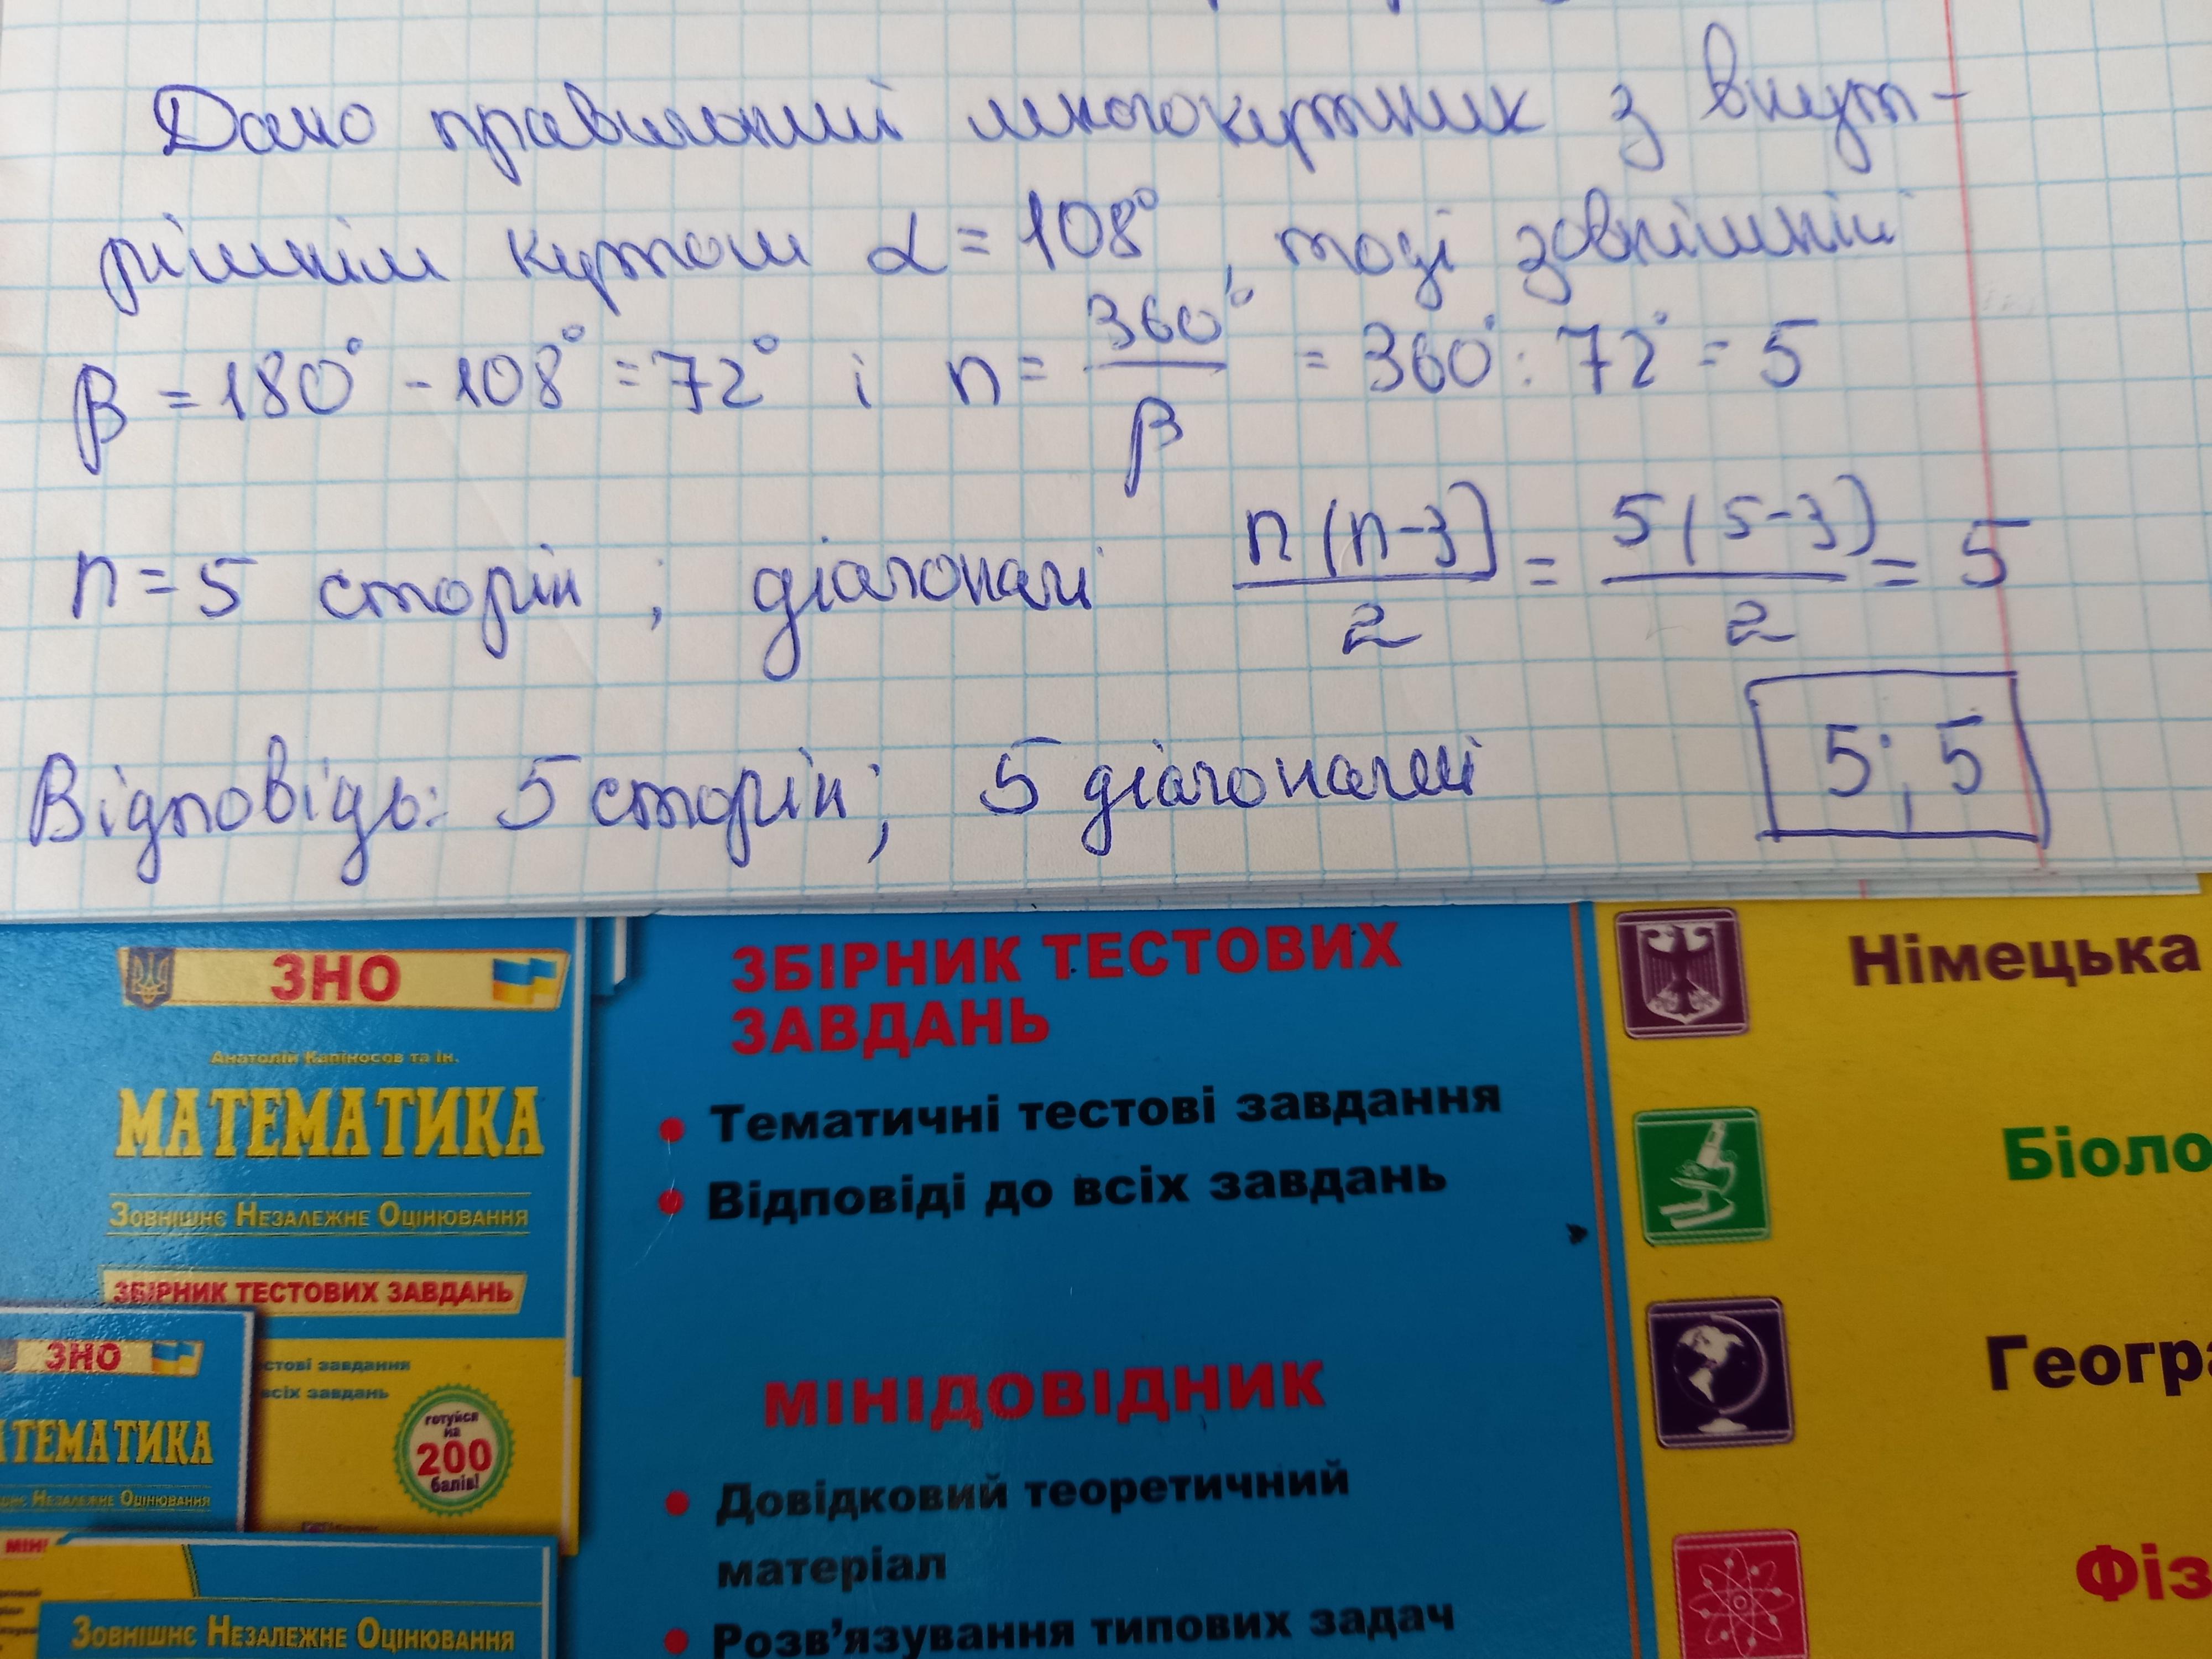 Дано правильний многокутник з внут-
рішнім кутом α = 108°, тоді зовнішній
β = 180° - 108° = 72° і n = 360°/β = 360° : 72° = 5
n = 5 сторін ; діагоналі n(n-3)/2 = 5(5-3)/2 = 5
Відповідь: 5 сторін; 5 діагоналей
5; 5
ЗНО
Анатолій Капіносов та ін.
МАТЕМАТИКА
Зовнішнє Незалежне Оцінювання
ЗБІРНИК ТЕСТОВИХ ЗАВДАНЬ
ЗНО
стові завдання
всіх завдань
АТЕМАТИКА
Незалежне Оцінювання
готуйся
на
200
балів!
МІНІ
Зовнішнє Незалежне Оцінювання
ЗБІРНИК ТЕСТОВИХ
ЗАВДАНЬ
• Тематичні тестові завдання
• Відповіді до всіх завдань
МІНІДОВІДНИК
• Довідковий теоретичний
матеріал
• Розв'язування типових задач
Німецька
Біоло
Геогра
Фіз